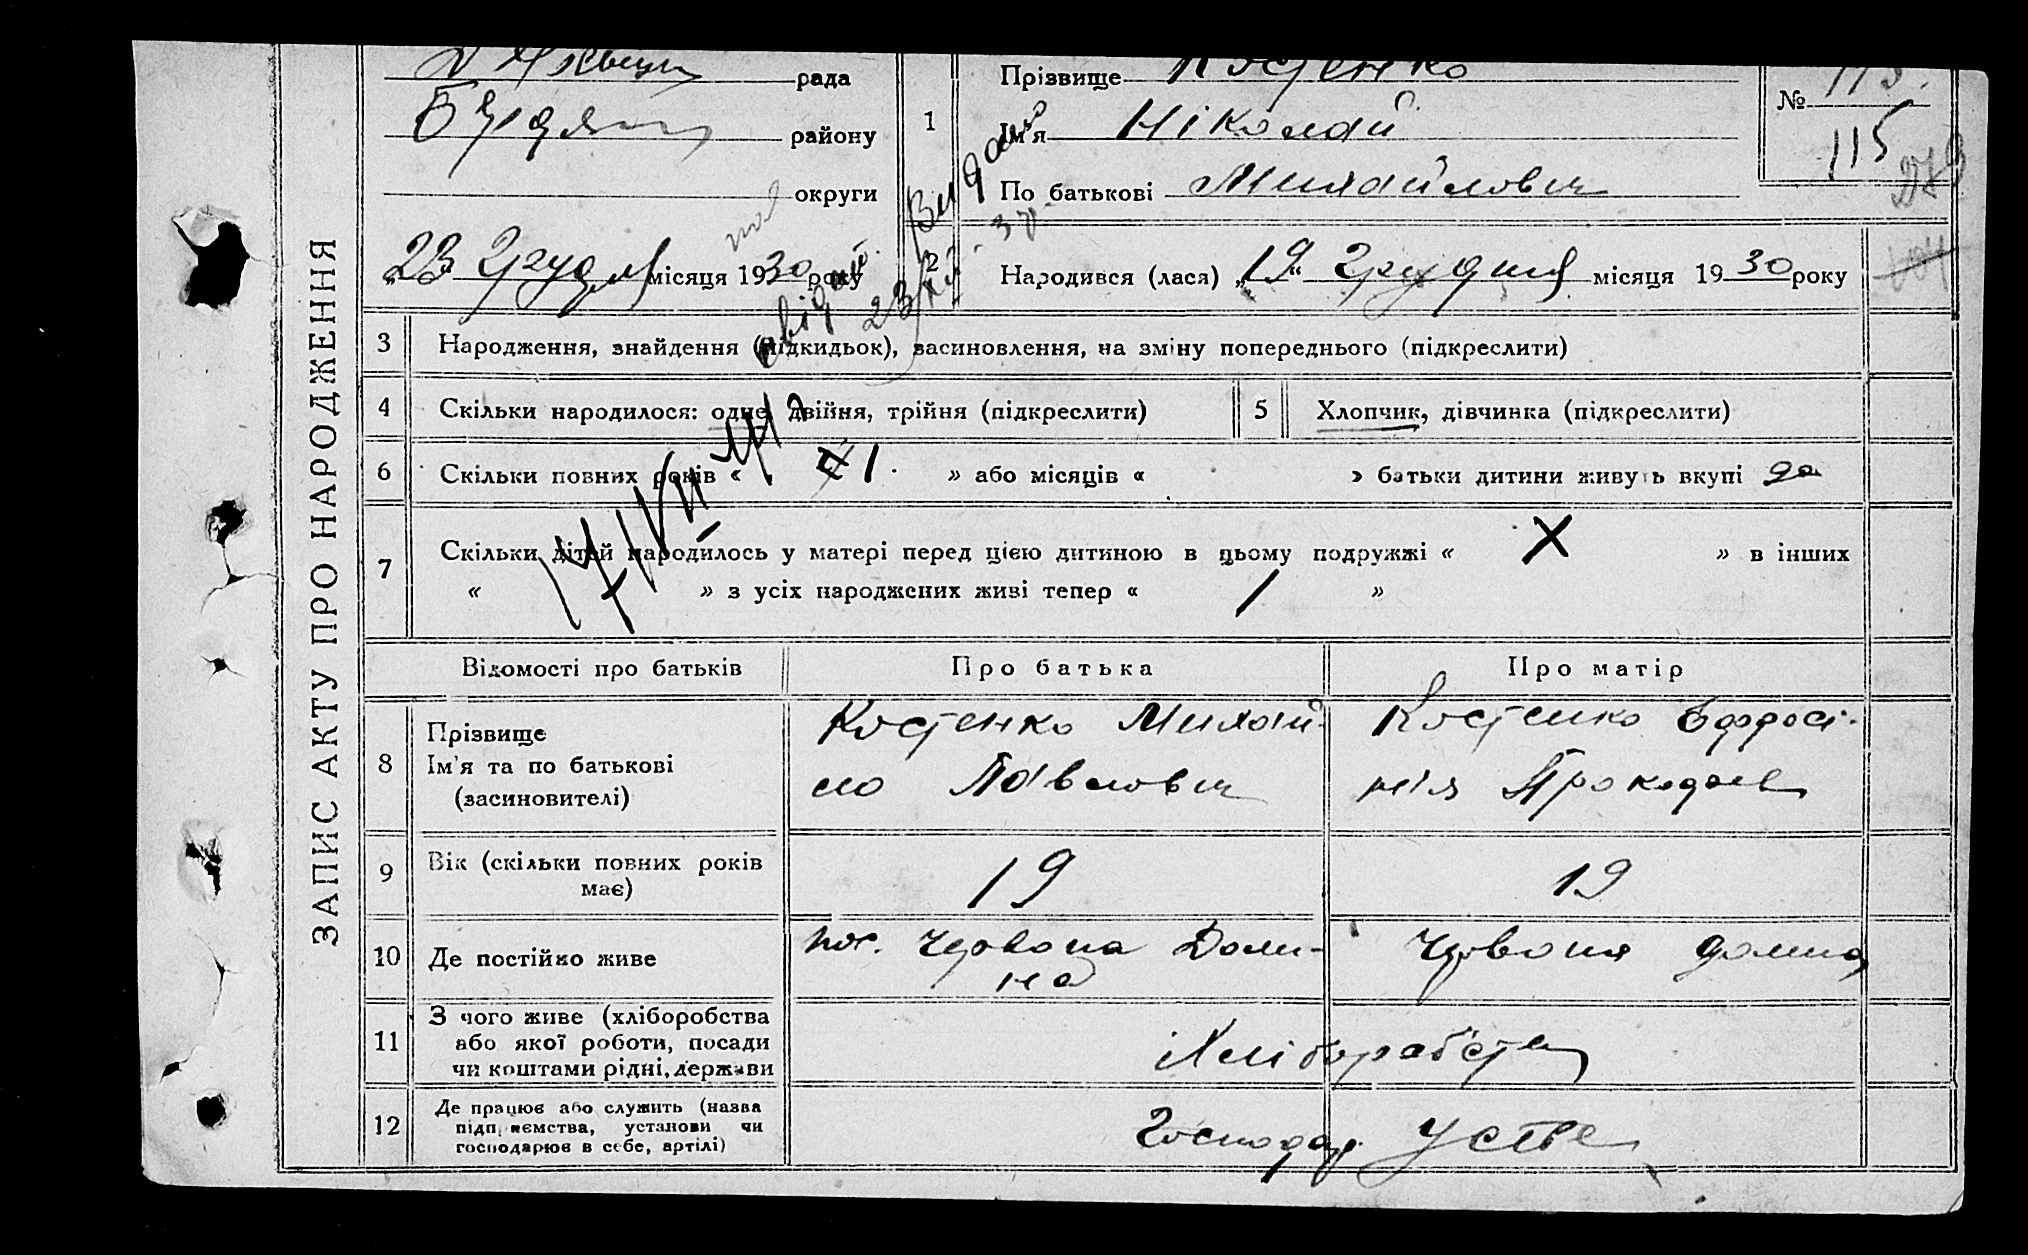 ЗАПИС АКТУ ПРО НАРОДЖЕННЯ
рада
району
округи
„23 Грудня місяця 1930 року
1
Прізвище Костенко
Ім'я Ніколай
По батькові Михайлович
№ 115.
115
2
Народився (лася) „19“ Грудня місяця 1930 року
Видано
3 Народження, знайдення (підкидьок), засиновлення, на зміну попереднього (підкреслити)
4 Скільки народилося: одне, двійня, трійня (підкреслити)
5 Хлопчик, дівчинка (підкреслити)
6 Скільки повних років « 1 » або місяців « » батьки дитини живуть вкупі да
7 Скільки дітей народилось у матері перед цією дитиною в цьому подружжі « X » в інших
« » з усіх народжених живі тепер « 1 »
Відомості про батьків
Про батька
Про матір
8 Прізвище
Ім'я та по батькові
(засиновителі)
Костенко Михай-
ло Павлович
Костенко Євдосі-
9 Вік (скільки повних років
має)
19
19
10 Де постійно живе
пос. Червона Доли-
на
Червона долина
11 З чого живе (хліборобства
або якої роботи, посади
чи коштами рідні, держави
Хліборабства
12 Де працює або служить (назва
підприємства, установи чи
господарює в себе, артілі)
Господар. у себе